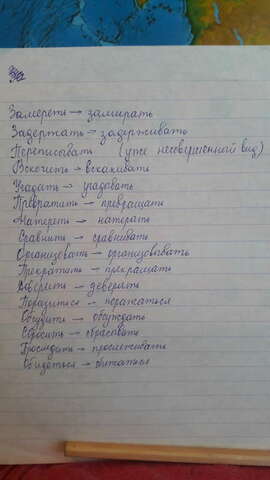 Замереть → замирать
Задержать → задерживать
Переписывать (уже несовершенный вид)
Вскочить → вскакивать
Угадать → угадовать
Превратить → превращать
Натереть → натерать
Сравнить → сравнивать
Организовать → организовывать
Прекратить → прекращать
Доверить → доверять
Поразиться → поражаться
Обсудить → обсуждать
Сбросить → сбрасовать
Проследить → прослеживать
Обидеться → обижаться